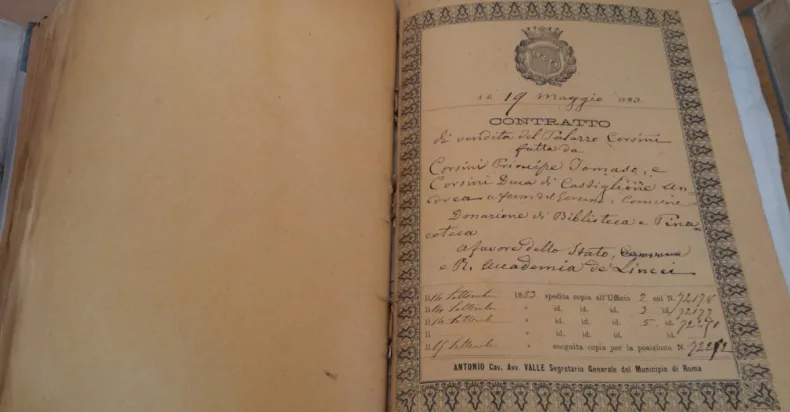 19 maggio 1883.
CONTRATTO
di vendita del Palazzo Corsini
fatta da
Corsini Principe Tomaso, e
Corsini Duca di Castiglione An
drea a favore del Governo e Comune
Donazione di Biblioteca e Pina
coteca
a favore dello Stato,
e R. Accademia de' Lincei
Il 14 Settembre 1883 spedita copia all'Ufficio 2 col N. 72178
Il 14 Settembre » id. id. id. 3 id. 72177
Il 14 Settembre » id. id. id. 5 id.
Il » id. id. id. id.
Il Settembre » eseguita copia per la posizione N.
ANTONIO Cav. Avv. VALLE Segretario Generale del Municipio di Roma